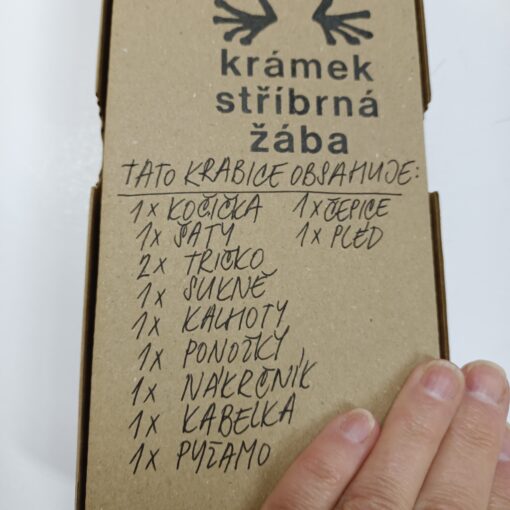 krámek
stříbrná
žába
TATO KRABICE OBSAHUJE:
1x KOČIČKA
1x ŠATY
2x TRIČKO
1x SUKNĚ
1x KALHOTY
1x PONOŽKY
1x NÁKRČNÍK
1x KABELKA
1x PYŽAMO
1x ČEPICE
1x PLÉD